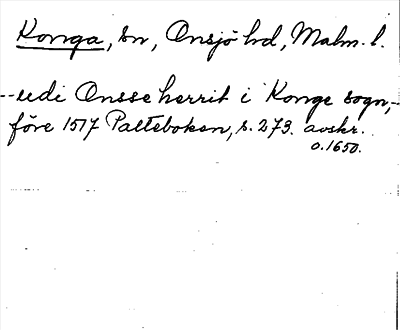 Konga, sn, Onsjö hd, Malm. l.
--udi Onsse herrit i Konge sogn,--
före 1517 Palteboken, s. 273. avskr.
o. 1650.